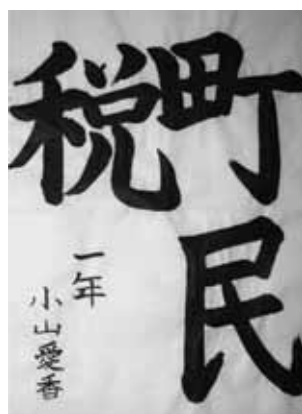 町民
税
一年
小山愛香